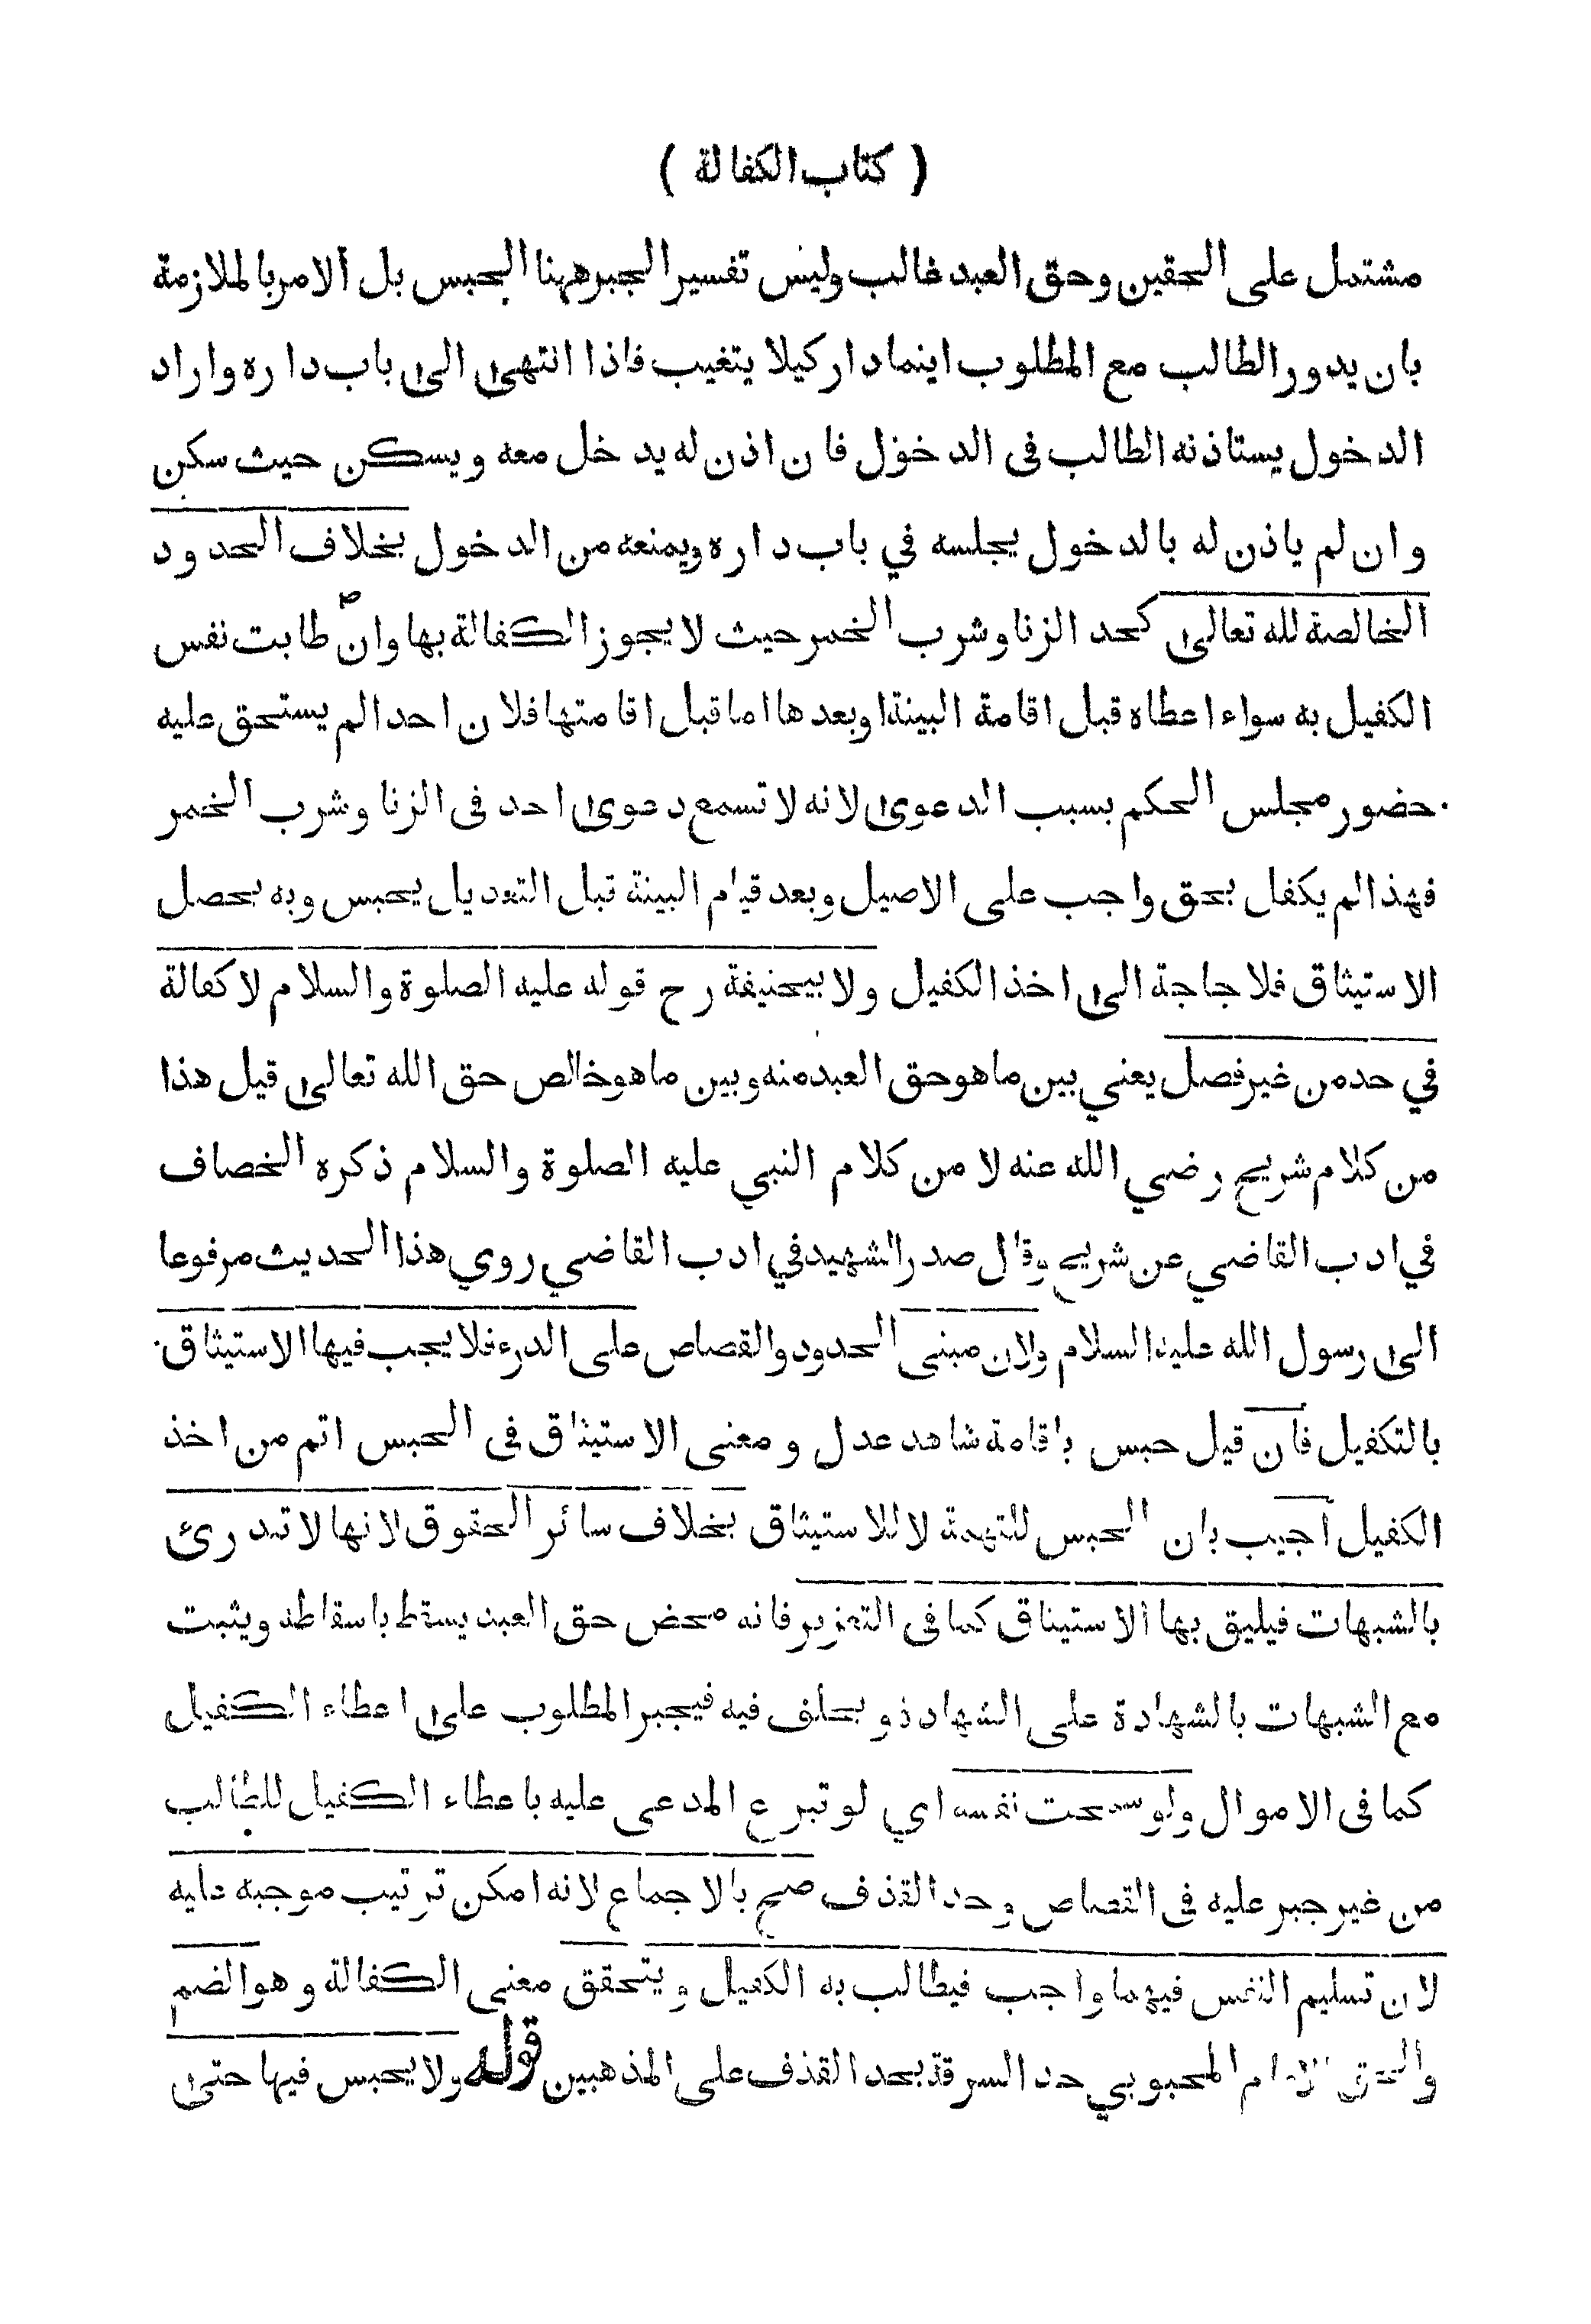 ( كتاب الكفالة )
مشتمل على الحقين وحق العبد غالب وليس تفسير الجبر ههنا الحبس بل الامر بالملازمة
بان يدور الطالب مع المطلوب اينما دار كيلا يتغيب فاذا انتهى الى باب داره واراد
الدخول يستاذنه الطالب فى الدخول فان اذن له يدخل معه ويسكن حيث سكن
وان لم ياذن له بالدخول يجلسه في باب داره ويمنعه من الدخول بخلاف الحدود
الخالصة لله تعالى كحد الزنا وشرب الخمر حيث لا يجوز الكفالة بها وان طابت نفس
الكفيل به سواء اعطاه قبل اقامة البينة او بعدها اما قبل اقامتها فلان احدا لم يستحق عليه
حضور مجلس الحكم بسبب الدعوى لانه لا تسمع دعوى احد فى الزنا وشرب الخمر
فهذا لم يكفل بحق واجب على الاصيل وبعد قيام البينة قبل التعديل يحبس وبه يحصل
الاستيثاق فلا حاجة الى اخذ الكفيل ولابيحنيفة رح قوله عليه الصلوة والسلام لا كفالة
في حد من غير فصل يعني بين ما هو حق العبد منه وبين ما هو خالص حق الله تعالى قيل هذا
من كلام شريح رضي الله عنه لا من كلام النبي عليه الصلوة والسلام ذكره الخصاف
في ادب القاضي عن شريح وقال صدر الشهيد في ادب القاضي روي هذا الحديث مرفوعا
الى رسول الله عليه السلام ولان مبنى الحدود والقصاص على الدرء فلا يجب فيها الاستيثاق
بالتكفيل فان قيل حبس باقامة شاهد عدل و معنى الاستيثاق فى الحبس اتم من اخذ
الكفيل اجيب بان الحبس للتهمة لا للاستيثاق بخلاف سائر الحقوق لانها لا تندرئ
بالشبهات فيليق بها الاستيثاق كما فى التعزير فانه محض حق العبد يسقط باسقاطه ويثبت
مع الشبهات بالشهادة على الشهادة و يحلف فيه فيجبر المطلوب على اعطاء الكفيل
كما فى الاموال ولو سمحت نفسه اي لو تبرع المدعى عليه باعطاء الكفيل للطالب
من غير جبر عليه فى القصاص وحد القذف صح بالاجماع لانه امكن ترتيب موجبه عليه
لان تسليم النفس فيهما واجب فيطالب به الكفيل و يتحقق معنى الكفالة و هو الضم
والحق الامام المحبوبي حد السرقة بحد القذف على المذهبين قوله ولا يحبس فيها حتى